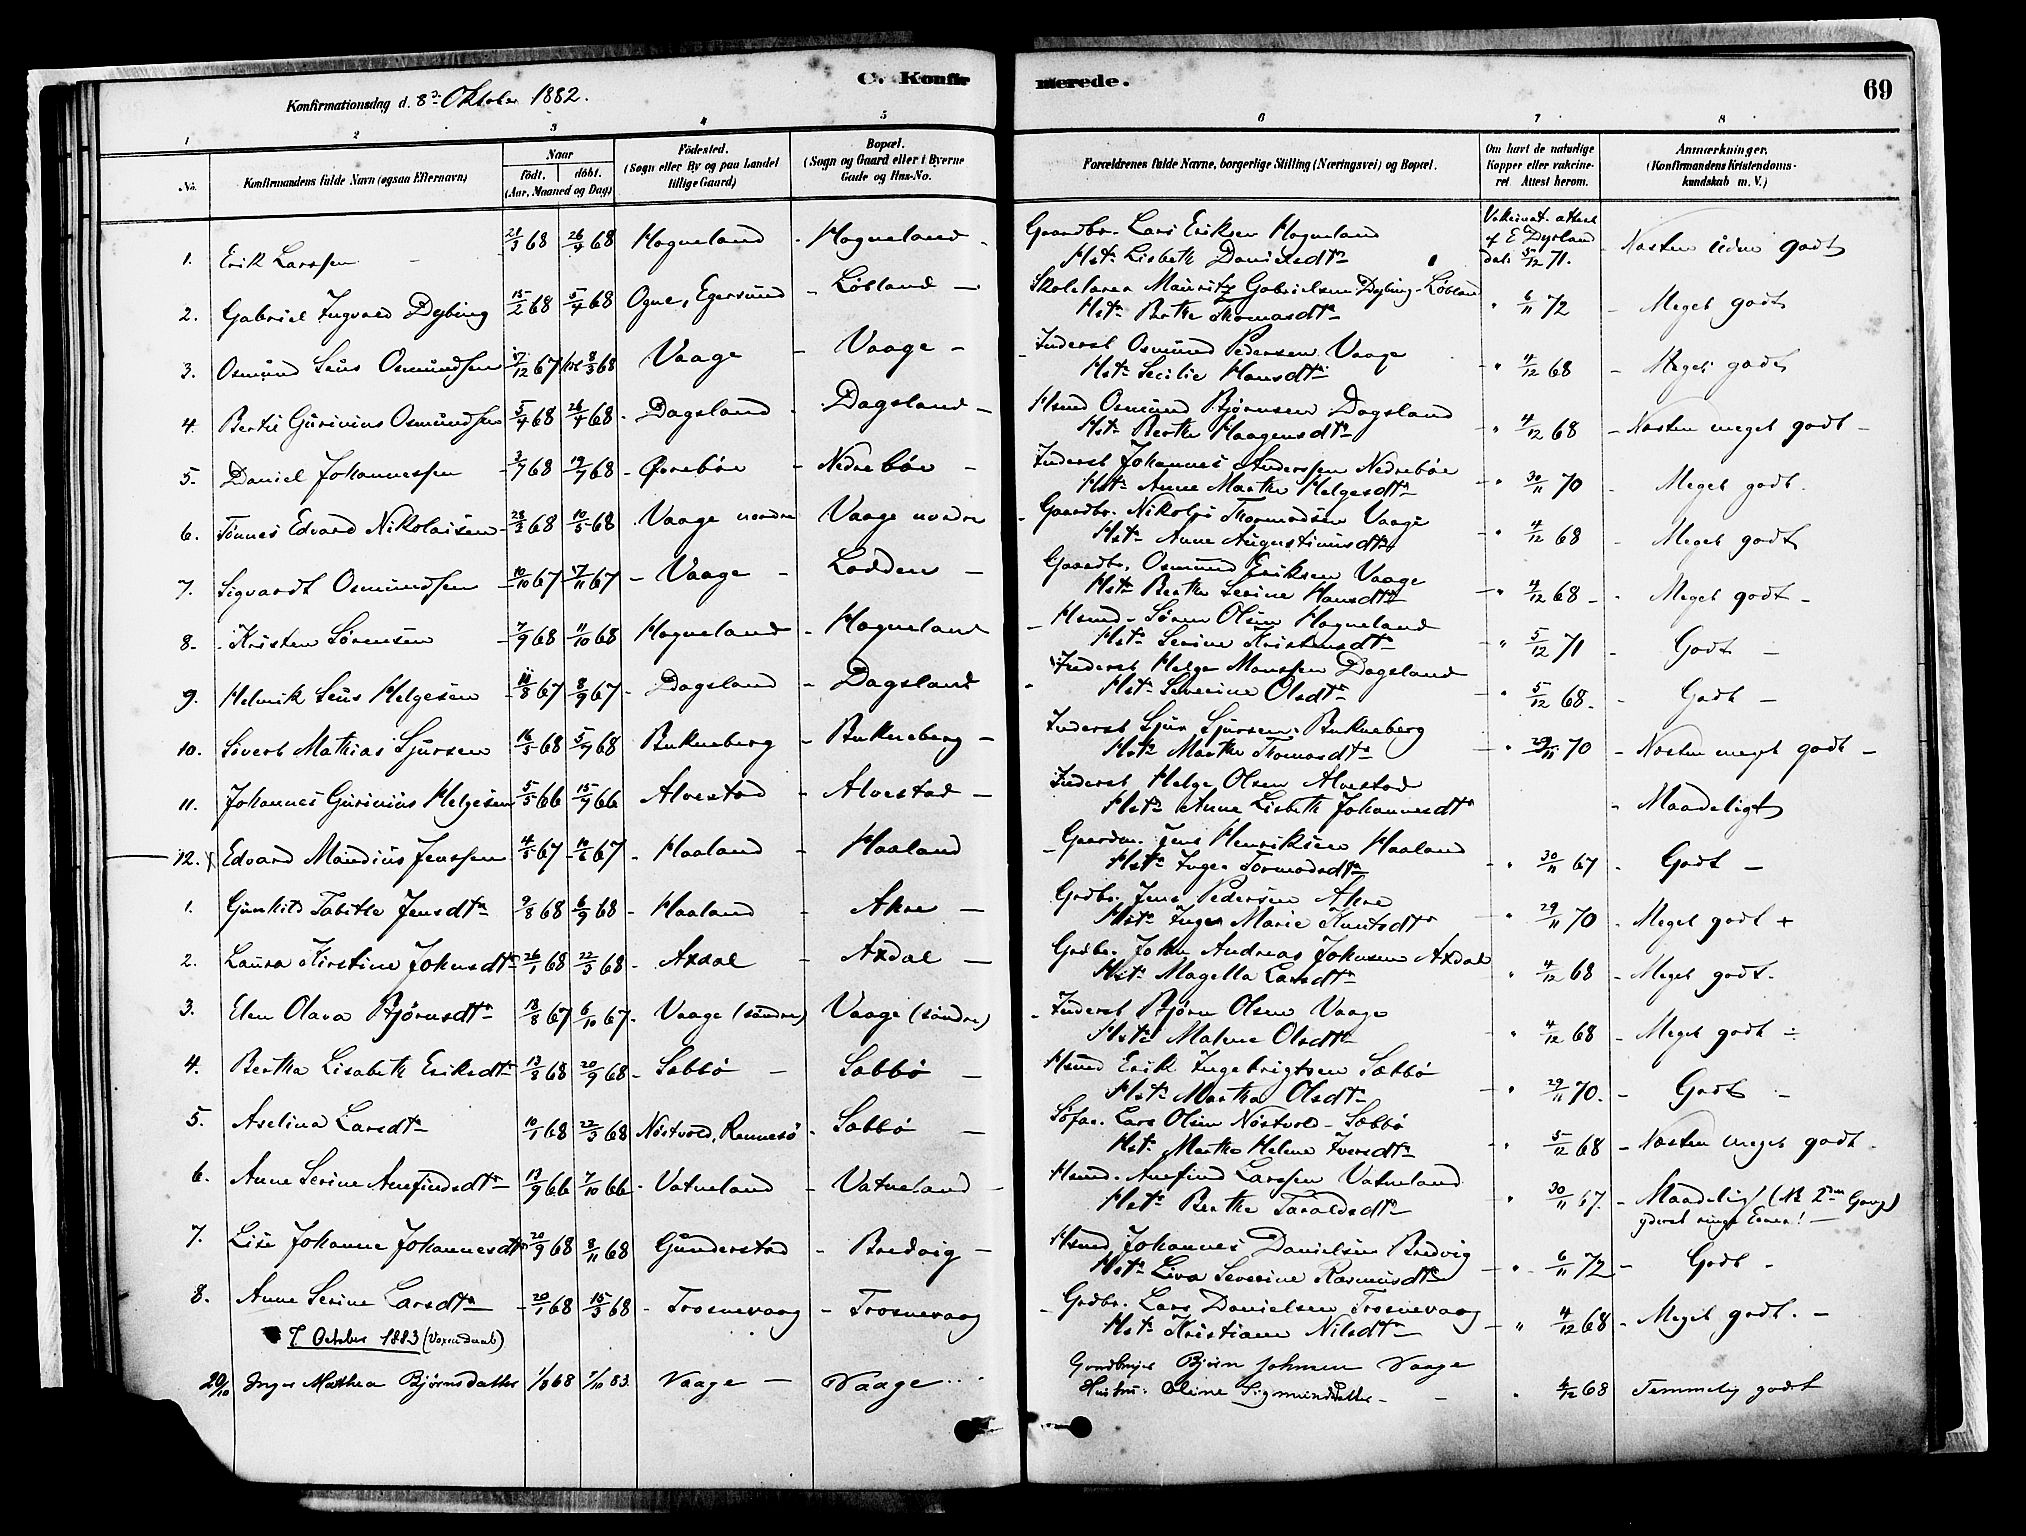 C. Konfir merede. 69
Konfirmationsdag d. 8de Oktober 1882.
1 2 3 4 5 6 7 8
No. Konfirmandens fulde Navn (ogsaa Efternavn) Naar født. døbt. (Aar, Maaned og Dag) Fødested. (Sogn eller By og paa Landet tillige Gaard) Bopæl. (Sogn og Gaard eller i Byerne Gade og Hus-No. Forældrenes fulde Navne, borgerlige Stilling (Næringsvei) og Bopæl. Om havt de naturlige Kopper eller vakcineret. Attest herom. Anmærkninger. (Konfirmandens Kristendomskundskab m. V.)
1. Erik Larssen 21/3 68 26/4 68 Hogneland Hogneland Gaardbr. Lars Eriksen Hogneland Vakcinat. attest
Hst. Lisbeth Danielsdtr af E Dyrland dat. 5/12 71. Næsten üdm. godt
2. Gabriel Ingvald Dybing 15/2 68 5/4 68 Ogne, Egersund Løbland Skolelærer Mauritz Gabrielsen Dybing Løbland
Hst. Berthe Thomasdtr " 6/11 72 Meget godt
3. Osmünd Seüs Osmündsen 17/12 67 8/3 68 Vaage Vaage Inderst Osmünd Pedersen Vaage
Hst. Secilie Hansdtr " 4/12 68 Meget godt
4. Bertil Gürinius Osmündsen 5/4 68 26/4 68 Dagsland Dagsland Hsmd Osmünd Bjørnsen Dagsland
Hst. Berthe Haagensdtr " 4/12 68 Næsten meget godt
5. Daniel Johannessen 3/7 68 19/7 68 Ørebøe Nedrebøe Inderst Johannes Anderssen Nedrebøe
Hst. Anne Marthe Helgesdtr " 30/11 70 Meget godt.
6. Tønnes Edvard Nikolaisen 28/3 68 10/5 68 Vaage nordre Vaage nordre Gaardbr. Nikolai Thormodsen Vaage
Hst. Anne Augustinusdtr " 4/12 68 Meget godt
7. Sigvardt Osmündsen 10/10 67 17/11 67 Vaage Lodden Gaardbr. Osmünd Eriksen Vaage
Hst. Berthe Serine Hansdtr " 4/12 68 Meget godt
8. Kristen Sørensen 7/9 68 11/10 68 Hogneland Hogneland Hsmd Søren Olsen Hogneland
Hst. Serine Kristensdtr " 5/12 71 Godt
9. Helmik Seüs Helgesen 11/8 67 8/9 67 Dagsland Dagsland Inderst Helge Monssen Dagsland
Hst. Severine Olsdtr " 5/12 68. Godt
10. Sivert Mathias Sjürsen 16/5 68 5/9 68 Bukneberg Bukneberg Inderst Sjur Sjursen Bukneberg
Hst. Marthe Thomasdtr " 29/11 70 Næsten meget godt
11. Johannes Gürinius Helgesen 5/5 66 15/9 66 Alvestad Alvestad Inderst Helge Olsen Alvestad
Hst. Anne Lisbeth Johannesdtr Maadeligt
12. Edvard Mandius Jenssen 4/5 67 10/6 67 Haaland Haaland Gaardm. Jens Henriksen Haaland
Hst. Inger Tormodsdtr " 30/11 67 Godt
1. Gunhild Tabithe Jensdtr 9/8 68 6/9 68 Haaland Akre Grdbr. Jens Pedersen Akre
Hst. Inger Marie Knutsdtr " 29/11 70 Meget godt +
2. Laura Kirstine Johnsdtr 26/1 68 22/3 68 Axdal Axdal Grdbr. John Andreas Johnsen Axdal
Hst. Magella Larsdtr " 4/12 68 Meget godt.
3. Elen Olava Bjørnsdtr 13/8 67 6/10 67 Vaage (söndre) Vaage (söndre) Inderst Bjørn Olsen Vaage
Hst. Malene Olsdtr " 4/12 68 Meget godt ÷
4. Bertha Lisabeth Eriksdtr 13/8 68 20/9 68 Sæbbø Sæbbø Hsmd Erik Ingebrigtsen Sæbbø
Hst. Martha Olsdtr " 29/11 70. Godt
5. Avelina Larsdtr 10/1 68 22/3 68 Nöstvold, Rennesö Sæbbø Søfar. Lars Olsen Nöstvold - Sæbbø
Hst. Marthe Helene Iversdtr " 5/12 68 Næsten meget godt.
6. Anne Serine Arnfindsdtr 13/9 66 7/10 66 Vatneland Vatneland Hsmd. Arnfind Larssen Vatneland
Hst. Berthe Taraldsdtr " 30/11 67. Maadeligt (NB 2den Gang) yderst ringe Evner!
7. Lise Johanne Johannesdtr 20/9 68 8/11 68 Günderstad Bredvig Hsmd Johannes Danielsen Bredvig
Hst. Liva Severine Rasmusdtr " 6/11 72 Godt
8. Anne Serine Larsdtr 20/1 68 15/3 68 Trosnevaag Trosnevaag Grdbr. Lars Danielsen Trosnevaag
Hst. Kristiane Nilsdtr " 4/12 68 Meget godt.
7. October 1883 (Voxendaab)
20/10 Inger Mathea Bjørnsdatter 1/8 68 7/10 83. Vaage Vaage Gaardbruger Bjørn Johnsen Vaage
Hustru. Oline Sigmundsdatter " 4/12 68 Temmelig godt